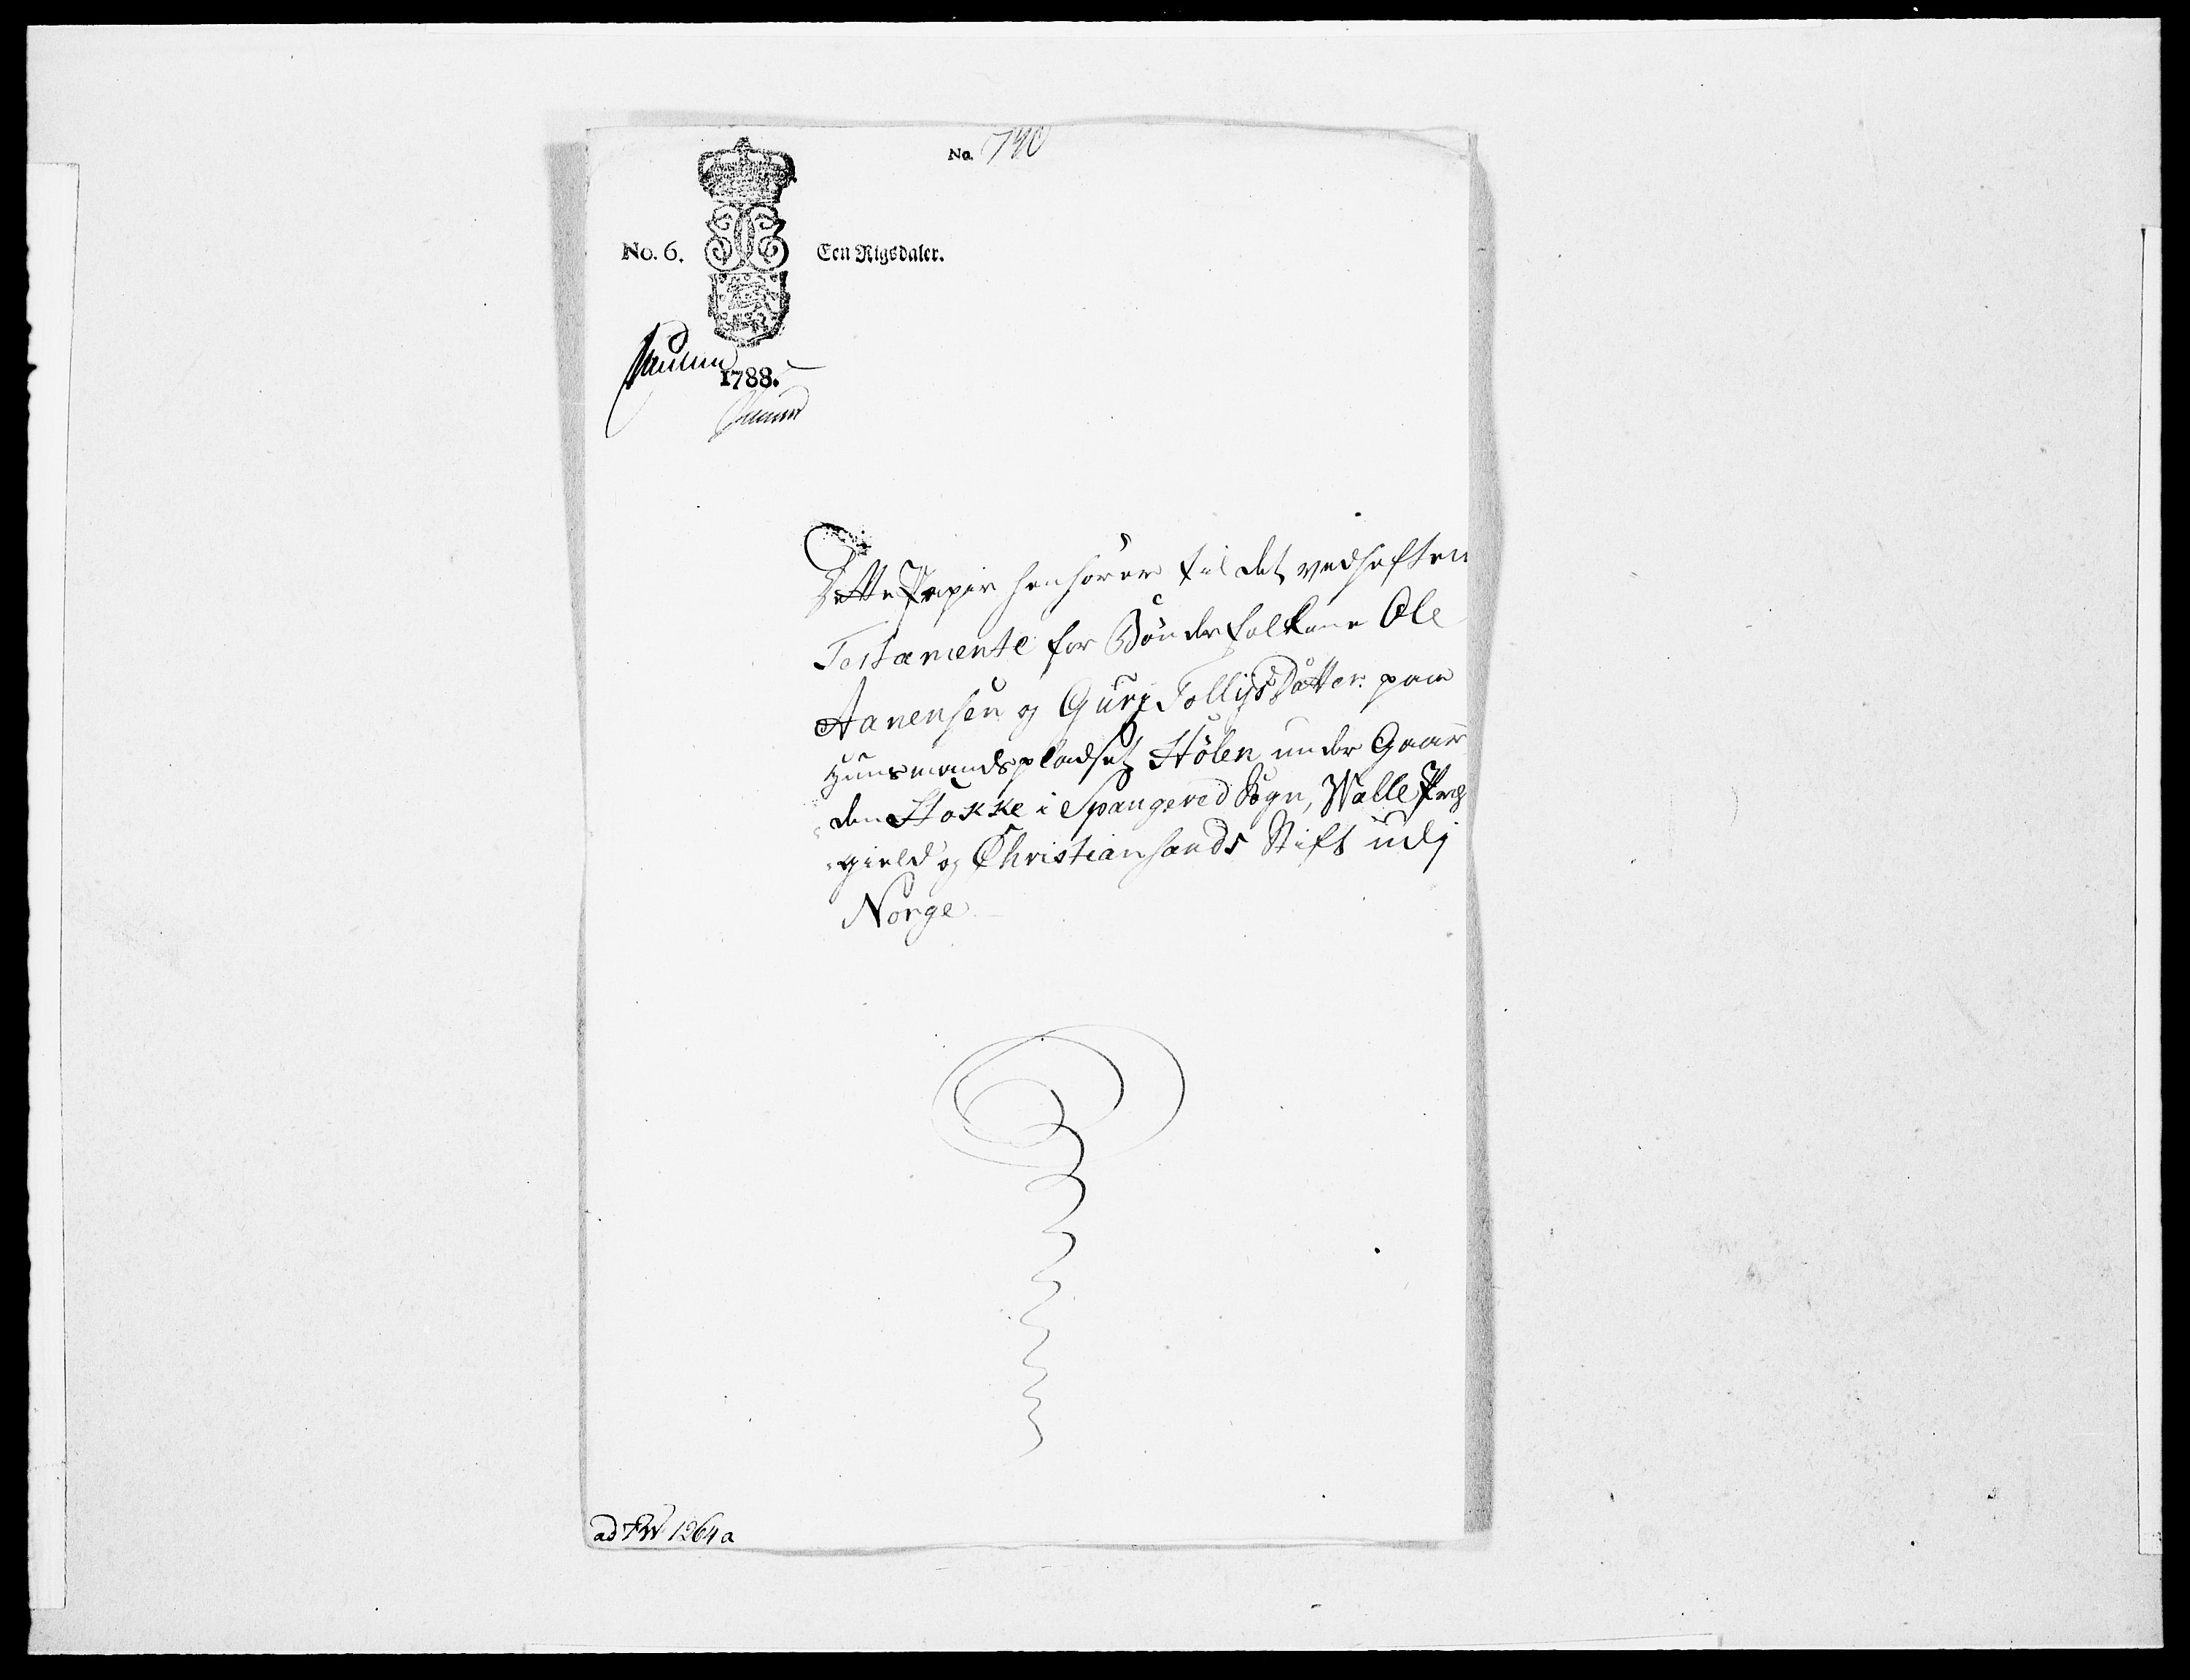 No. 790
No. 6. Een Rigsdaler.
1788.
Dette Papir henhører til det vedheften
Testamente for Bønderfolkene Ole
Aanensen og Gurj Tollijsdatter paa
Huusmandspladset Stølen under Gaar
den Stokke i Spangered Sogn, Walle Præ
gield og Christiansands Stift udj
Norge.
ad FW 1264a